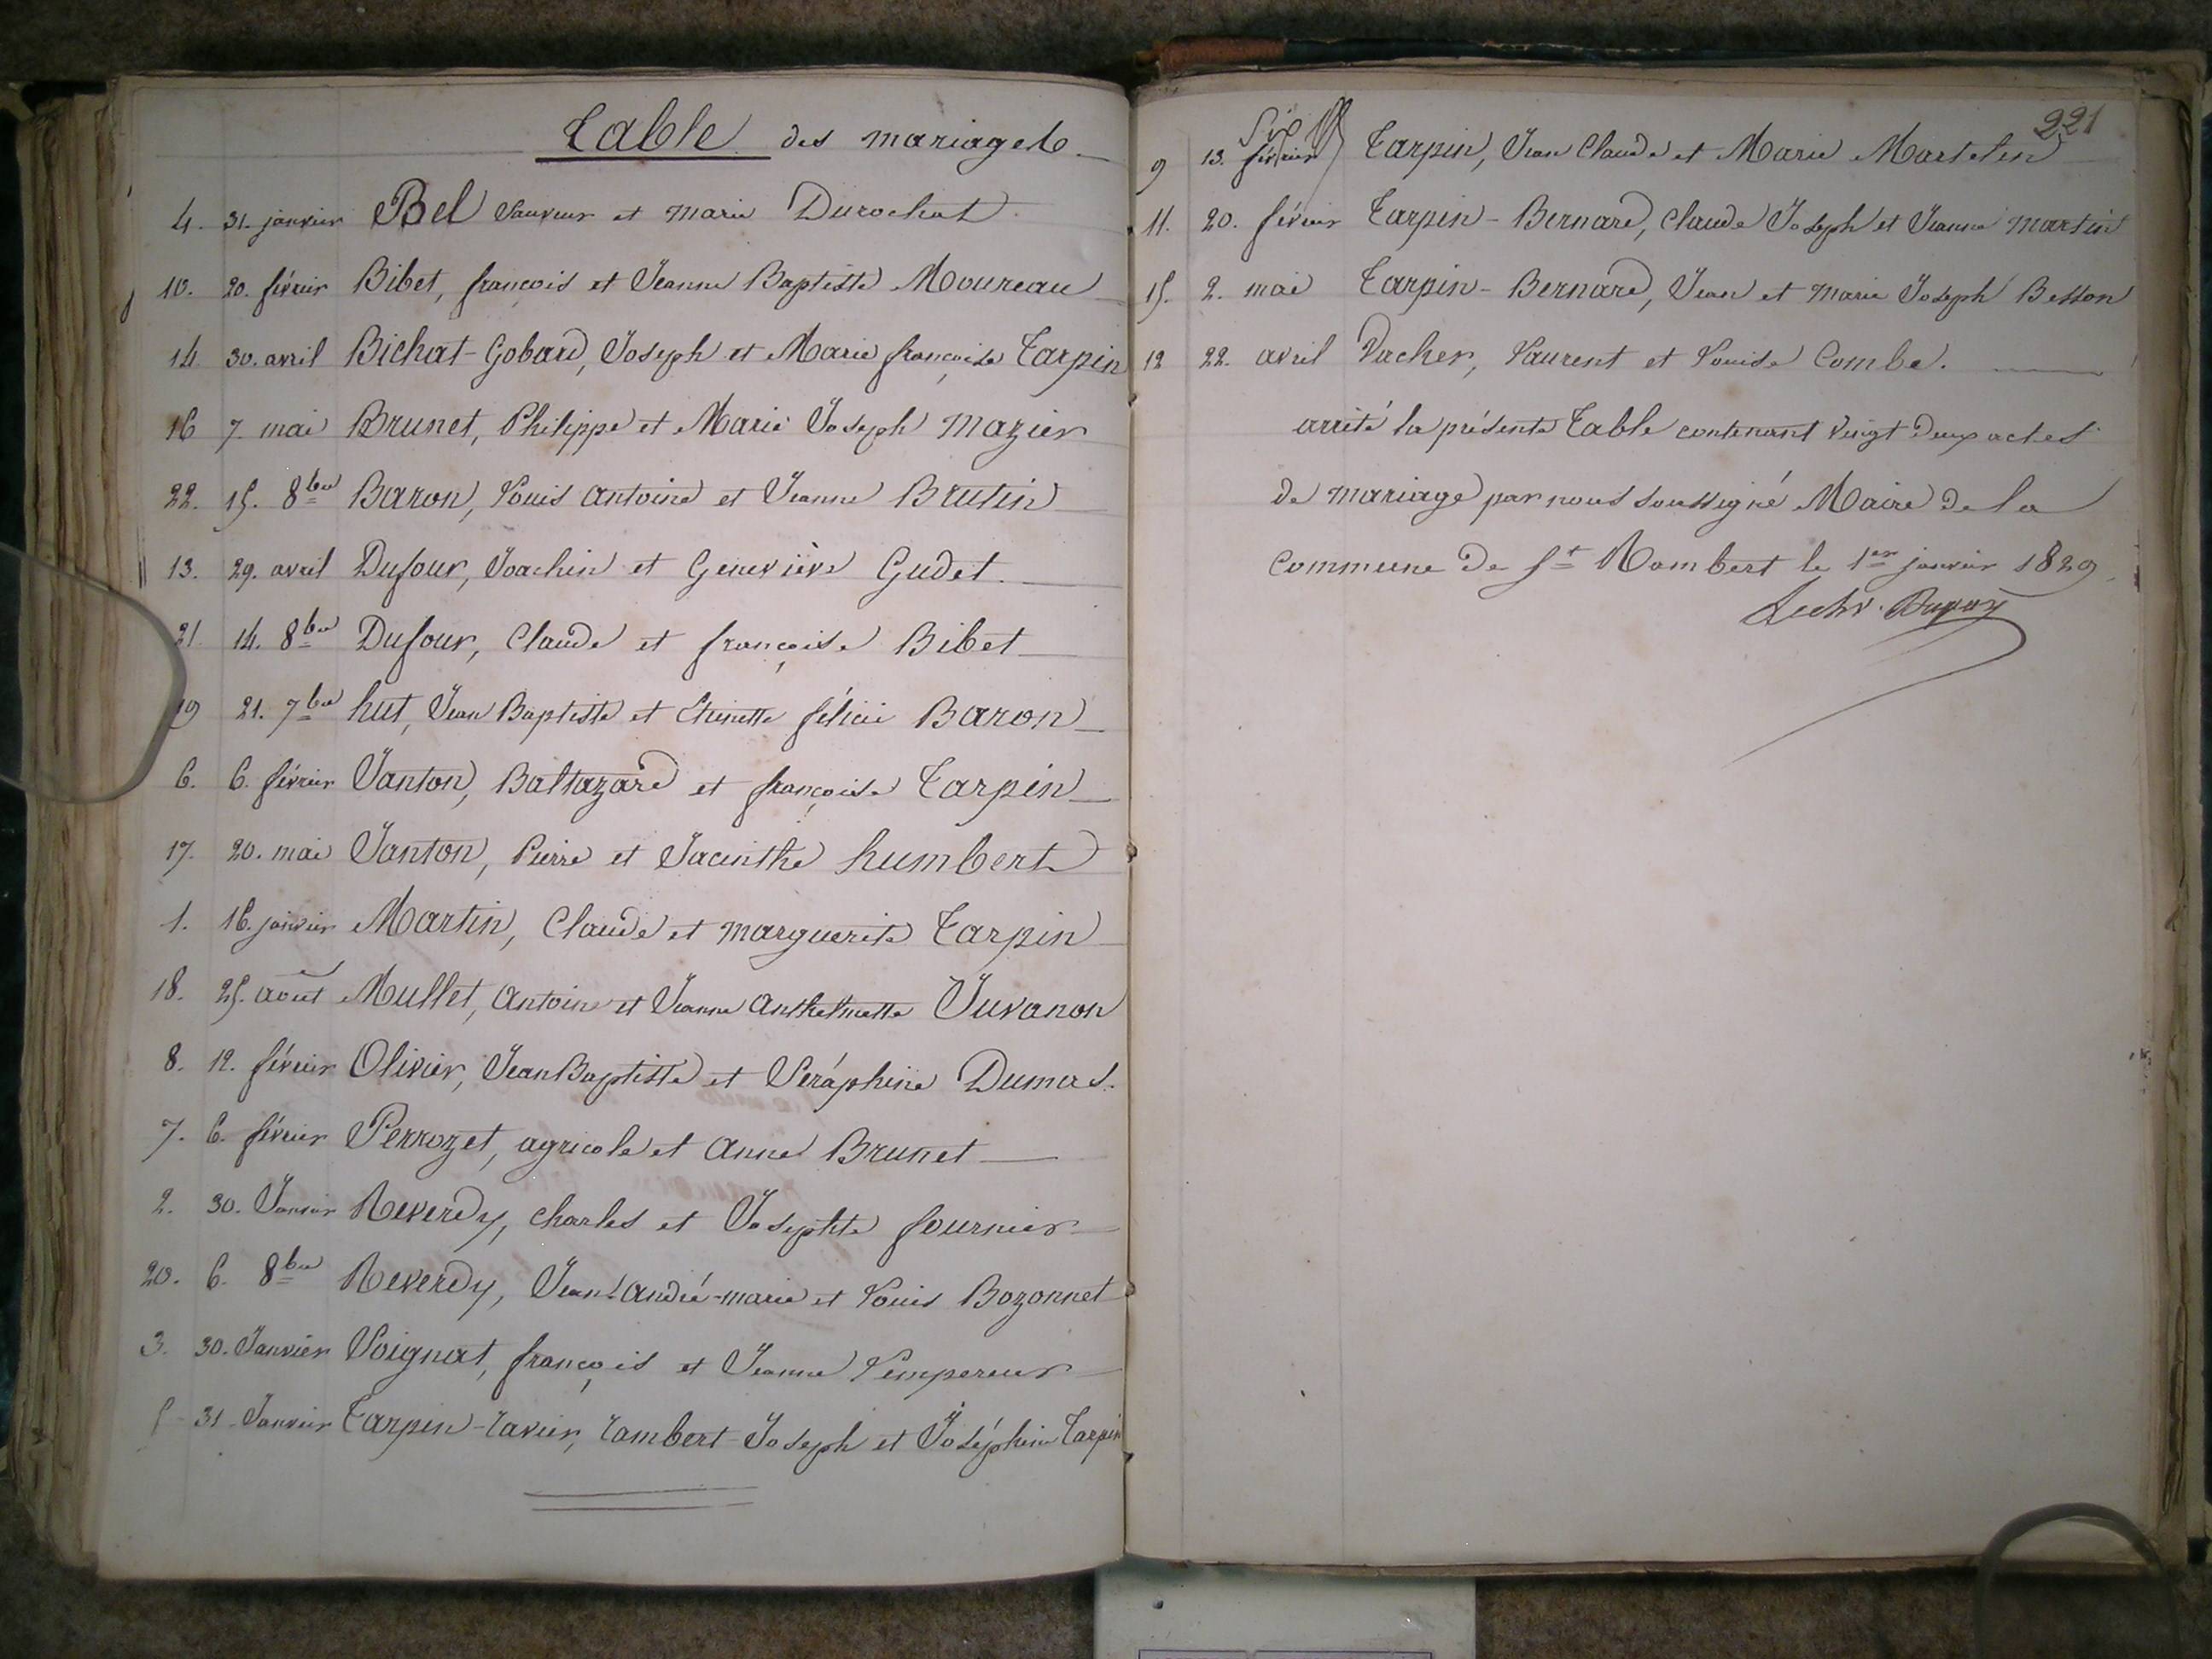 Table des mariages
4. 31. janvier Bel Sauveur et Marie Durochat
10. 20. février Bibet, françois et Jeanne Baptiste Moureau
14 30. avril Bichat-Gobard, Joseph et Marie françoise Tarpin
16 7. mai Brunet, Philippe et Marie Joseph Mazier
22. 15. 8bre Baron, Louis antoine et Jeanne Brutin
13. 29. avril Dufour, Joachin et Geneviève Gudet.
21. 14. 8bre Dufour, Claude et françoise Bibet
19 21. 7bre hut, Jean Baptiste et Etiennette félicie Baron
6. 6. février Janton, Baltazard et françoise Tarpin
17. 20. mai Janton, Pierre et Jacinthe humbert
1. 16. janvier Martin, Claude et marguerite Tarpin
18. 25. août Mullet, Antoine et Jeanne Anthelmette Juvanon
8. 12. février Olivier, Jean Baptiste et Séraphine Dumas.
7. 6. février Perrozet, agricole et Anne Brunet
2. 30. Janvier Reverdy, charles et Josephte fournier
20. 6. 8bre Reverdy, Jean André-marie et Louis Bozonnet
3. 30. Janvier Soignat, françois et Jeanne Lempereur
5 31 Janvier Tarpin-Xavier, Rambert Joseph et Joséphine Tarpin
221
9 13. février Tarpin, Jean Claude et Marie Martelin
11. 20. février Tarpin-Bernard, Claude Joseph et Jeanne Martin
15. 2. mai Tarpin-Bernard, Jean et Marie Joseph Besson
12 22. avril Vacher, Laurent et Louise Combe.
arrêté la présente Table contenant vingt deux actes
de mariage par nous soussigné Maire de la
Commune de St Rambert le 1er janvier 1829.